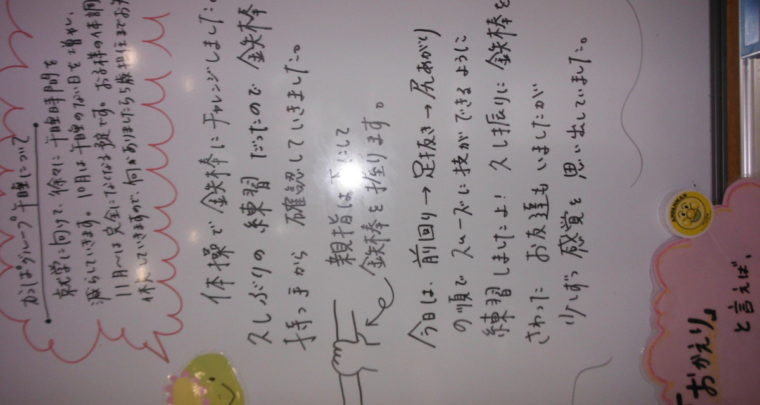 体操で鉄棒にチャレンジしました。
久しぶりの練習だったので鉄棒の
持つ手から確認していきました。
親指は下にして
鉄棒を握ります。
今日は、前回り→足抜き→尻あがり
の順でスムーズに技ができるように
練習しましたよ!久し振りに鉄棒を
さわったお友達もいましたが
少しずつ感覚を思い出していました。
かっぱグループ午睡について
就学に向けて、徐々に午睡時間を
減らしていきます。10月は午睡のない日を増やし、
11月〜は完全になくなる予定です。お子様の体調
していきますので、何かありましたら5歳担任までお
「おかえり」
と言えば、